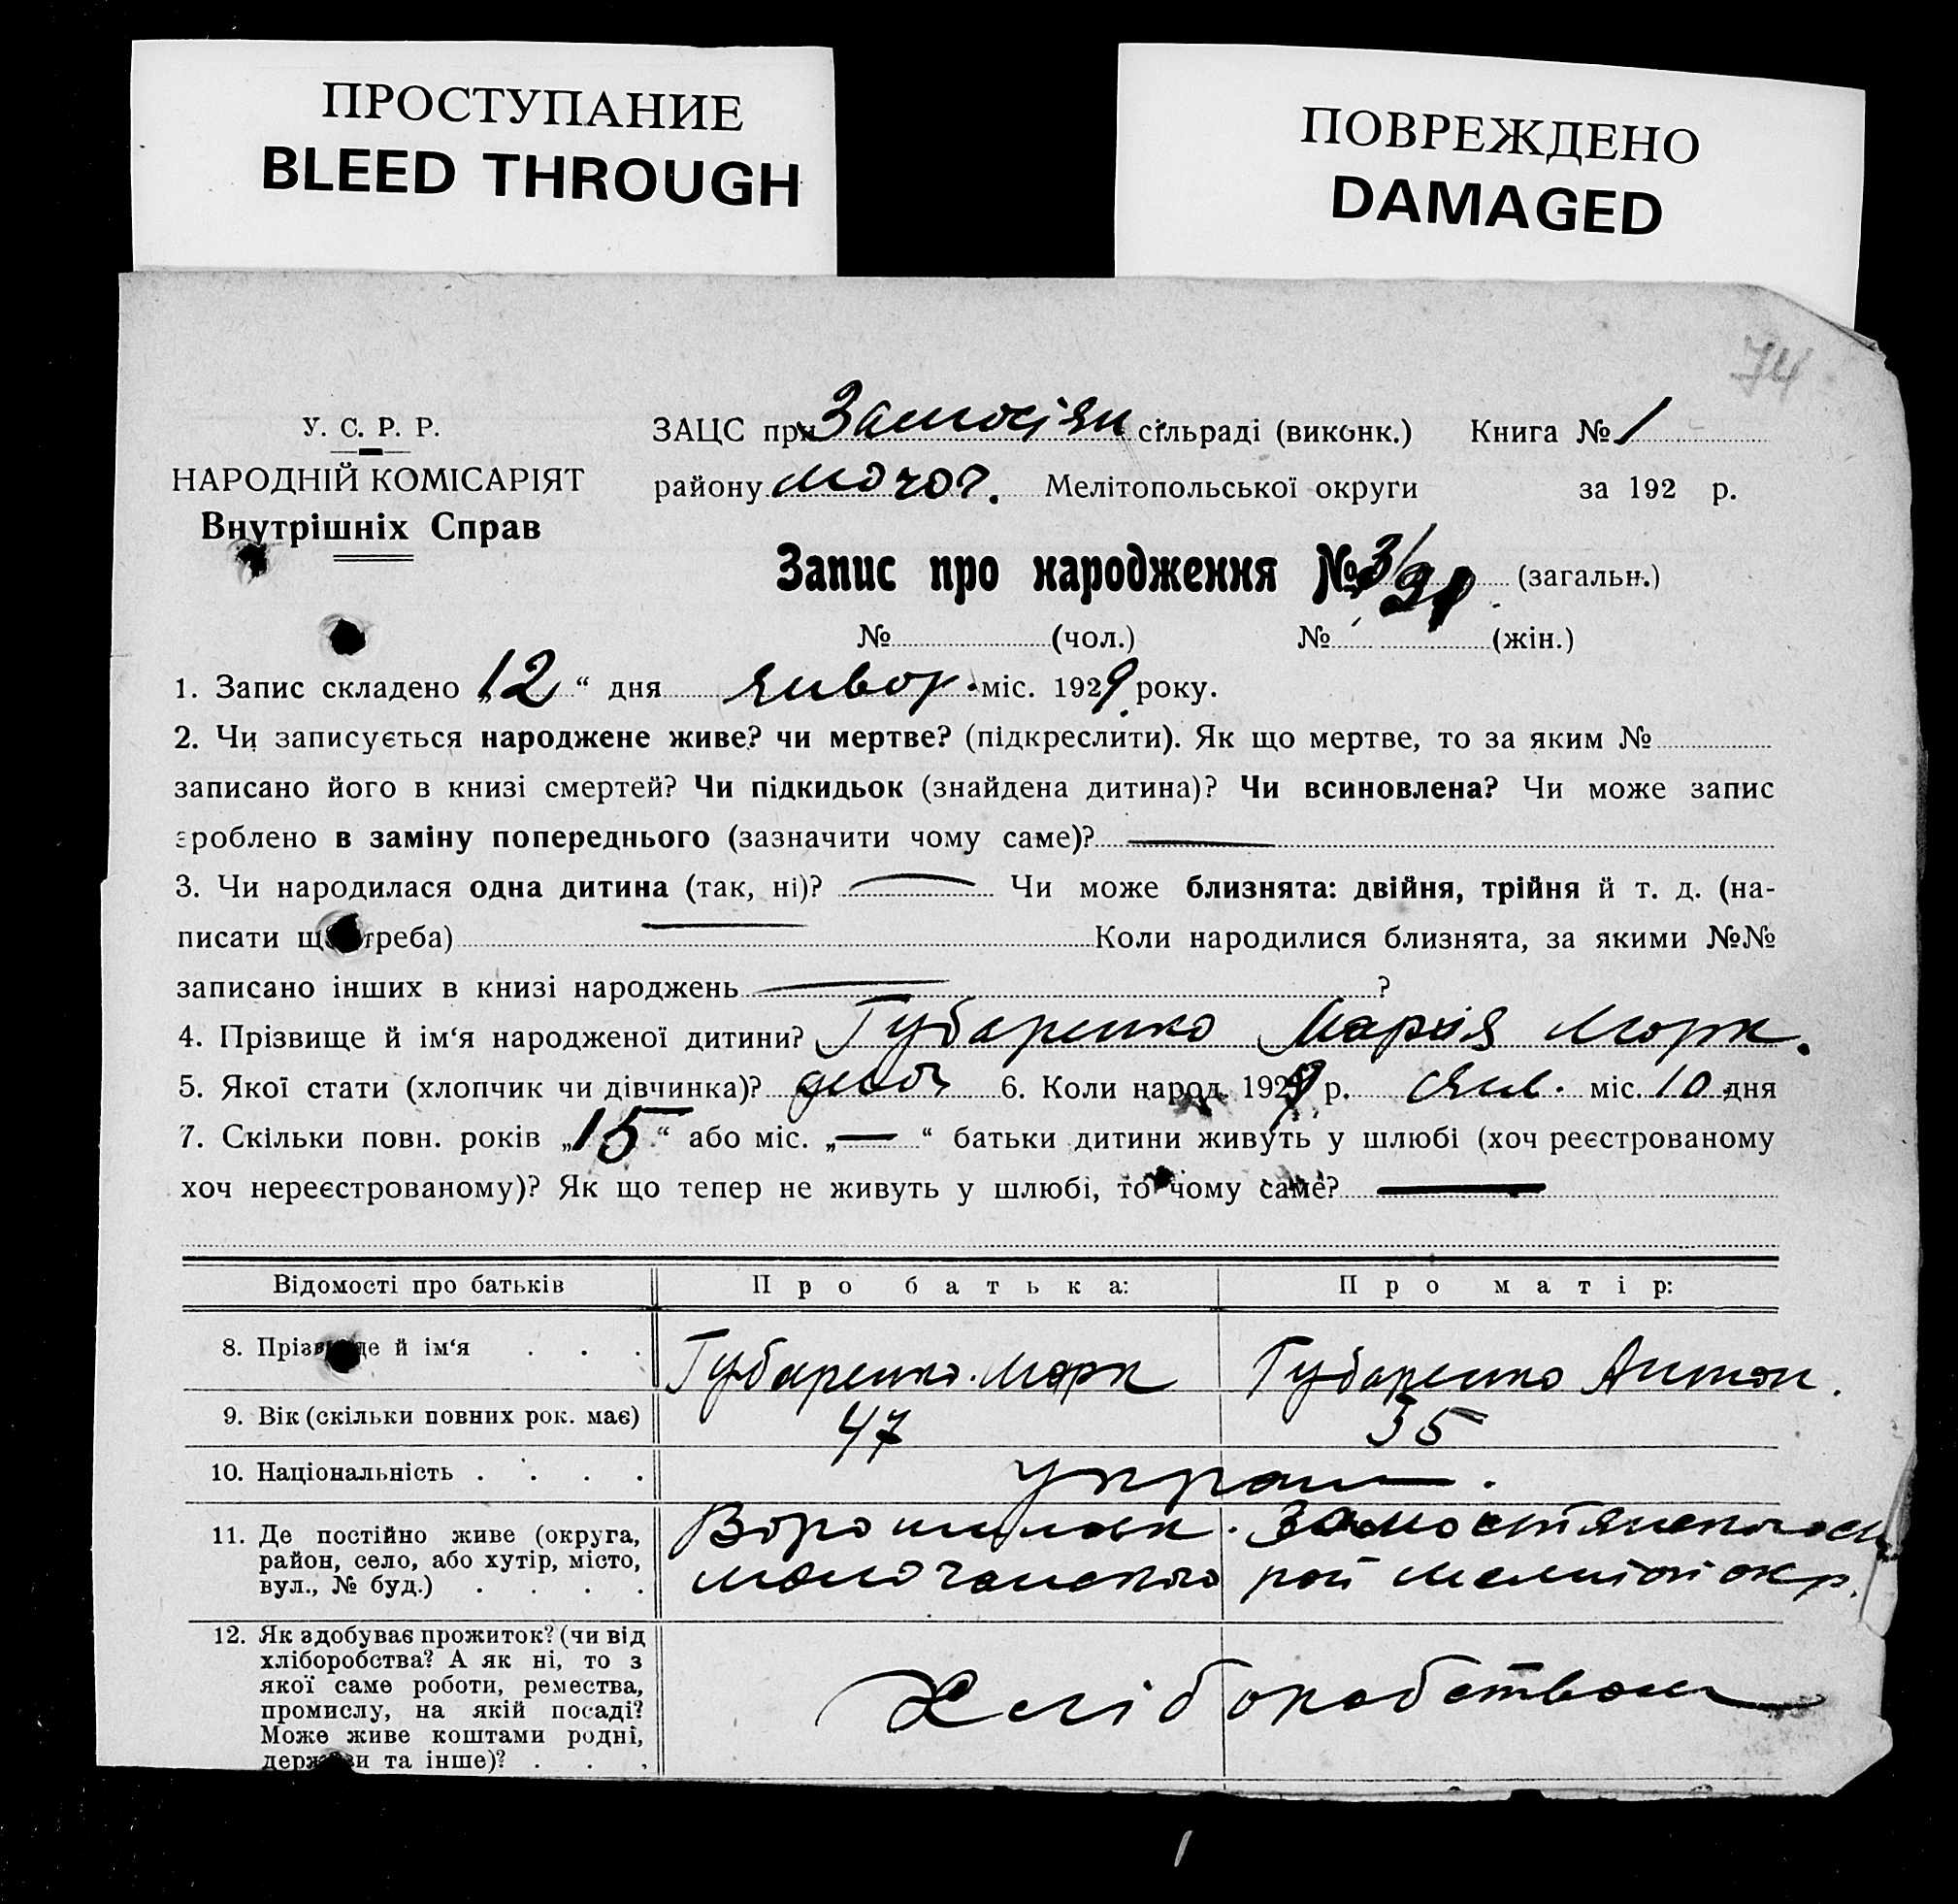 ПРОСТУПАНИЕ
BLEED THROUGH
ПОВРЕЖДЕНО
DAMAGED
74
У. С. Р. Р.
НАРОДНІЙ КОМІСАРІЯТ
Внутрішніх Справ
ЗАЦС при сільраді (виконк.) Книга № 1
району Мелітопольської округи за 192 р.
Запис про народження № 3/ (загальн.)
№ (чол.) № (жін.)
1. Запис складено „12“ дня январ. міс. 1929 року.
2. Чи записується народжене живе? чи мертве? (підкреслити). Як що мертве, то за яким №
записано його в книзі смертей? Чи підкидьок (знайдена дитина)? Чи всиновлена? Чи може запис
зроблено в заміну попереднього (зазначити чому саме)? —
3. Чи народилася одна дитина (так, ні)? — Чи може близнята: двійня, трійня й т. д. (на-
писати що треба) — Коли народилися близнята, за якими №№
записано інших в книзі народжень — ?
4. Прізвище й ім‘я народженої дитини? Губаренко Марія Марк.
5. Якої стати (хлопчик чи дівчинка)? 6. Коли народ. 1929 р. Янв. міс. 10 дня
7. Скільки повн. років „15“ або міс. „—“ батьки дитини живуть у шлюбі (хоч реєстрованому
хоч нереєстрованому)? Як що тепер не живуть у шлюбі, то чому саме? —
Відомості про батьків Про батька: Про матір:
8. Прізвище й ім‘я . . . Губаренко Марк Губаренко Антон.
9. Вік (скільки повних рок. має) 47 35
10. Національність . . . . украин.
11. Де постійно живе (округа,
район, село, або хутір, місто,
вул., № буд.) . . . .
Замостянского
рай Мелитоп окр.
12. Як здобуває прожиток? (чи від
хліборобства? А як ні, то з
якої саме роботи, ремества,
промислу, на якій посаді?
Може живе коштами родні,
держави та інше)? . . .
Хлібопабством